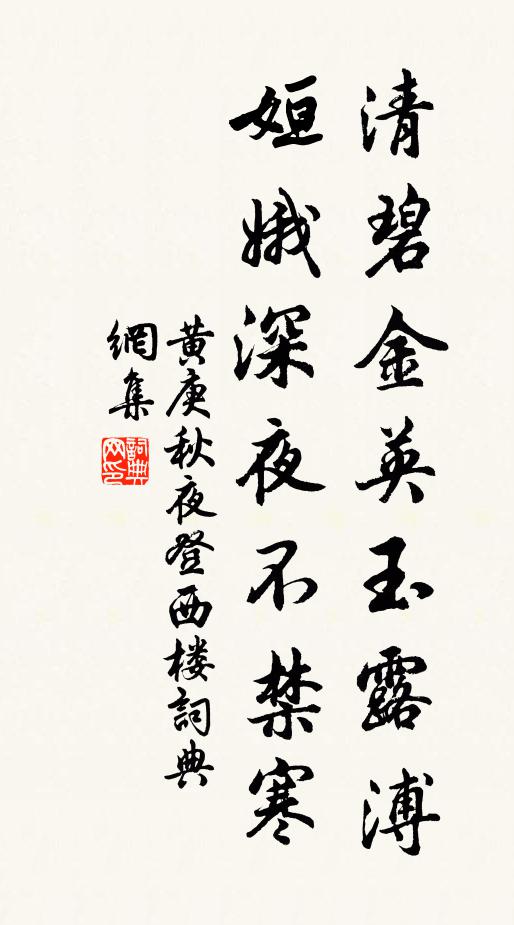 清碧金英玉露漙
姮娥深夜不禁寒
黄庚秋夜登西楼詞典
網集
詞典网印